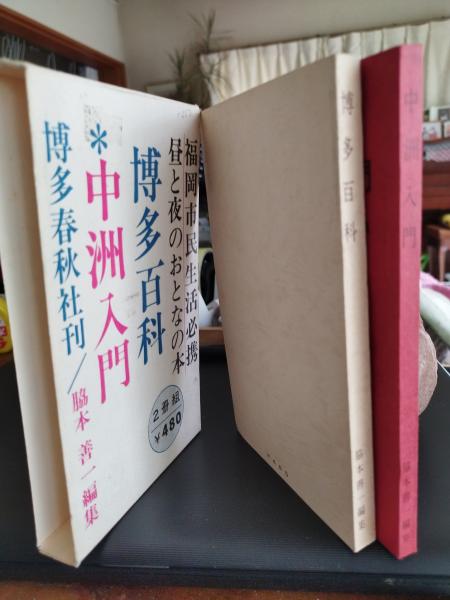 福岡市民生活必携
昼と夜のおとなの本
博多百科
*中洲入門
博多春秋社刊/脇本善一編集
2冊組
¥480
博多百科
脇本善一編集
中洲入門
脇本善一編集